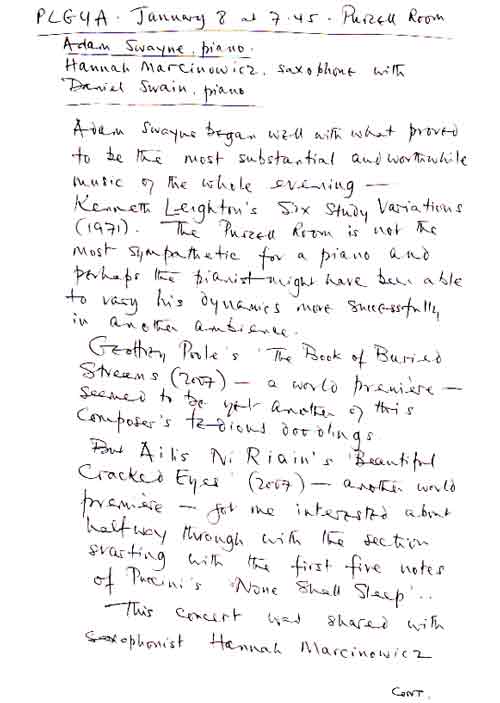 PLG4A. January 8 at 7.45. Purcell Room
Adam Swayne, piano.
Hannah Marcinowicz, saxophone with
Daniel Swain, piano
Adam Swayne began well with what proved
to be the most substantial and worthwhile
music of the whole evening —
Kenneth Leighton's Six Study Variations
(1971). The Purcell Room is not the
most sympathetic for a piano and
perhaps the pianist might have been able
to vary his dynamics more successfully
in another ambience.
Geoffrey Poole's 'The Book of Buried
Streams (2007) — a world première —
seemed to be yet another of this
composer's tedious doodlings.
But Ailis Ni Riain's 'Beautiful
Cracked Eyes' (2007) — another world
première — got me interested about
halfway through with the section
starting with the first five notes
of Puccini's 'None Shall Sleep'..
This concert was shared with
saxophonist Hannah Marcinowicz
CONT.